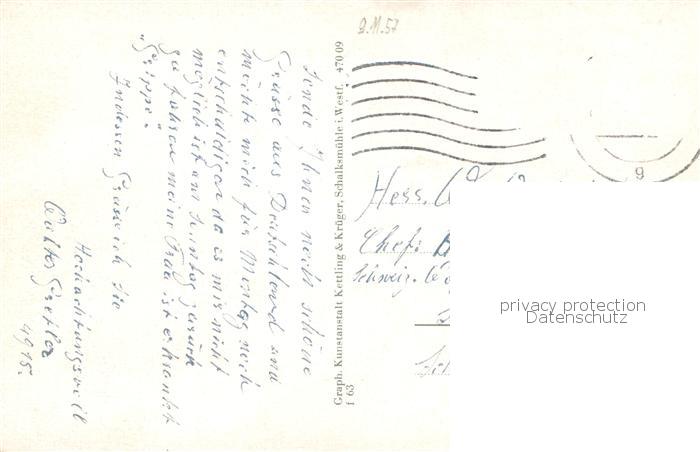 9.11.57
Sende Ihnen recht schöne
Grüsse aus Deutschland und
möchte mich für Montag noch
entschuldigen da es mir nicht
möglich ist am Sonntag zurück
zu fahren meine Frau ist erkrankt
"Grippe"
Indessen Grüsse ich Sie
Hochachtungsvoll
Walter
4915.
Graph. Kunstanstalt Kettling & Krüger, Schalksmühle i. Westf. 470 09
f 63
9
Chef:
Schweiz.
privacy protection
Datenschutz